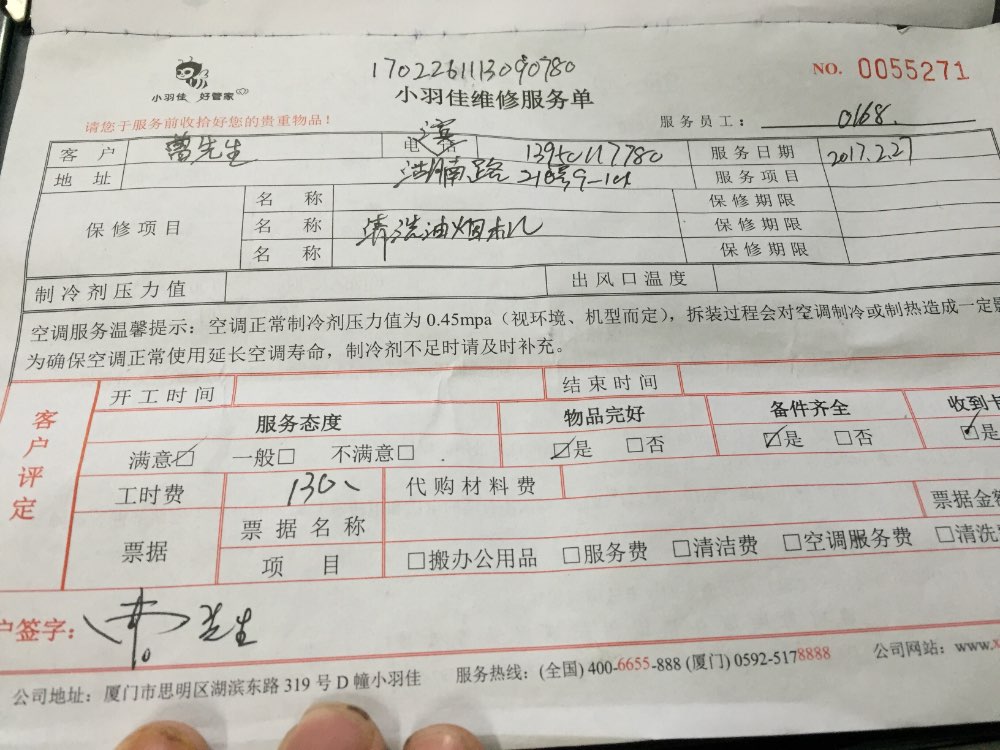 1702261113090780
NO. 0055271
小羽佳 好管家
小羽佳维修服务单
请您于服务前收拾好您的贵重物品！
服务员工： 0168.
客 户 曾先生 电 话 13950117780 服务日期 2017.2.27
地 址 路 218号9-101 服务项目
保修项目 名 称 保修期限
名 称 清洗油烟机 保修期限
名 称 保修期限
制冷剂压力值 出风口温度
空调服务温馨提示：空调正常制冷剂压力值为 0.45mpa（视环境、机型而定），拆装过程会对空调制冷或制热造成一定
为确保空调正常使用延长空调寿命，制冷剂不足时请及时补充。
客户评定
开工时间 结束时间
服务态度 物品完好 备件齐全 收到卡
满意☑ 一般□ 不满意□ ☑是 □否 ☑是 □否 ☑是
工时费 130、 代购材料费
票据 票据名称 票据金额
项 目 □搬办公用品 □服务费 □清洁费 □空调服务费 □清洗
户签字： 先生
公司地址：厦门市思明区湖滨东路 319 号 D 幢小羽佳 服务热线：(全国) 400-6655-888 (厦门) 0592-5178888 公司网站：www.x